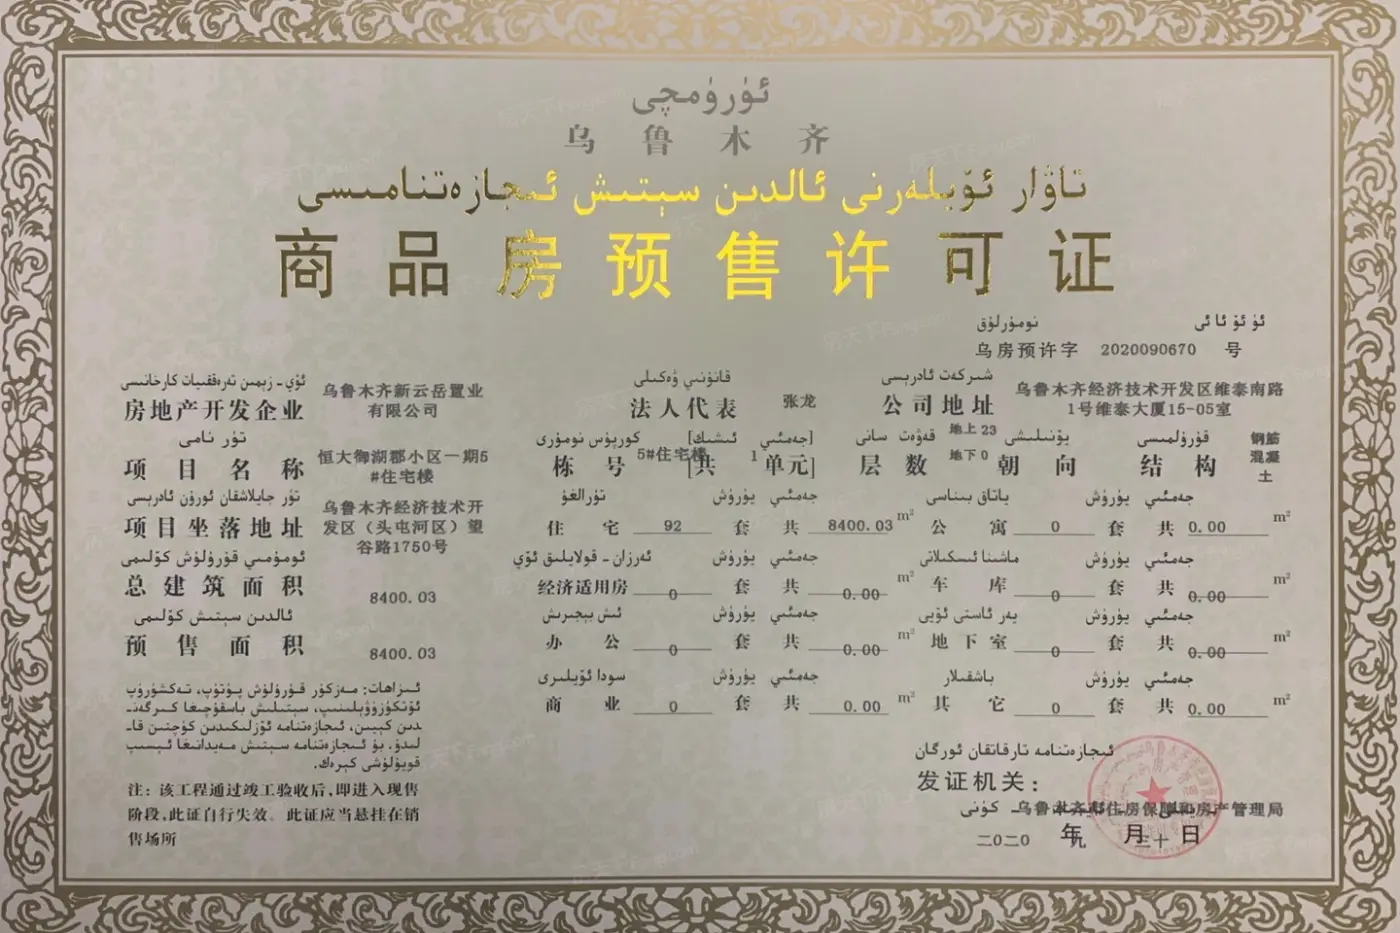 ئۈرۈمچى
乌鲁木齐
تاۋار ئۆيلەرنى ئالدىن سېتىش ئىجازەتنامىسى
商品房预售许可证
ئۈ ئۆ ئا ئى نومۇرلۇق
乌房预许字 2020090670 号
ئۆي - زېمىن تەرەققىيات كارخانىسى
房地产开发企业 乌鲁木齐新云岳置业有限公司
قانۇنىي ۋەكىلى
法人代表 张龙
شىركەت ئادرېسى
公司地址 乌鲁木齐经济技术开发区维泰南路1号维泰大厦15-05室
تۈر نامى
项目名称 恒大御湖郡小区一期5#住宅楼
كورپۇس نومۇرى [جەمئىي ئىشىك]
栋号 5#住宅楼 [共 1 单元]
قەۋەت سانى
层数 地上 23 地下 0
يۆنىلىشى
朝向
قۇرۇلمىسى
结构 钢筋混凝土
تۈر جايلاشقان ئورۇن ئادرېسى
项目坐落地址 乌鲁木齐经济技术开发区（头屯河区）望谷路1750号
تۇرالغۇ يۈرۈش جەمئىي
住宅 92 套 共 8400.03 m²
ياتاق بىناسى يۈرۈش جەمئىي
公寓 0 套 共 0.00 m²
ئومۇمىي قۇرۇلۇش كۆلىمى
总建筑面积 8400.03
ئەرزان - قولايلىق ئۆي يۈرۈش جەمئىي
经济适用房 0 套 共 0.00 m²
ماشىنا ئىسكىلاتى يۈرۈش جەمئىي
车库 0 套 共 0.00 m²
ئالدىن سېتىش كۆلىمى
预售面积 8400.03
ئىش بېجىرىش يۈرۈش جەمئىي
办公 0 套 共 0.00 m²
يەر ئاستى ئۆيى يۈرۈش جەمئىي
地下室 0 套 共 0.00 m²
سودا ئۆيلىرى يۈرۈش جەمئىي
商业 0 套 共 0.00 m²
باشقىلار يۈرۈش جەمئىي
其它 0 套 共 0.00 m²
ئىزاھات: مەزكۇر قۇرۇلۇش پۈتۈپ، تەكشۈرۈپ
ئۆتكۈزۈۋېلىنىپ، سېتىلىش باسقۇچىغا كىرگەن-
دىن كېيىن، ئىجازەتنامە ئۆزلىكىدىن كۈچتىن قا-
لىدۇ. بۇ ئىجازەتنامە سېتىش مەيدانىغا ئېسىپ
قويۇلۇشى كېرەك.
注：该工程通过竣工验收后，即进入现售
阶段，此证自行失效。此证应当悬挂在销
售场所
ئىجازەتنامە تارقاتقان ئورگان
发证机关：
乌鲁木齐市住房保障和房产管理局
كۈنى
二〇二〇 年 九 月 三十 日